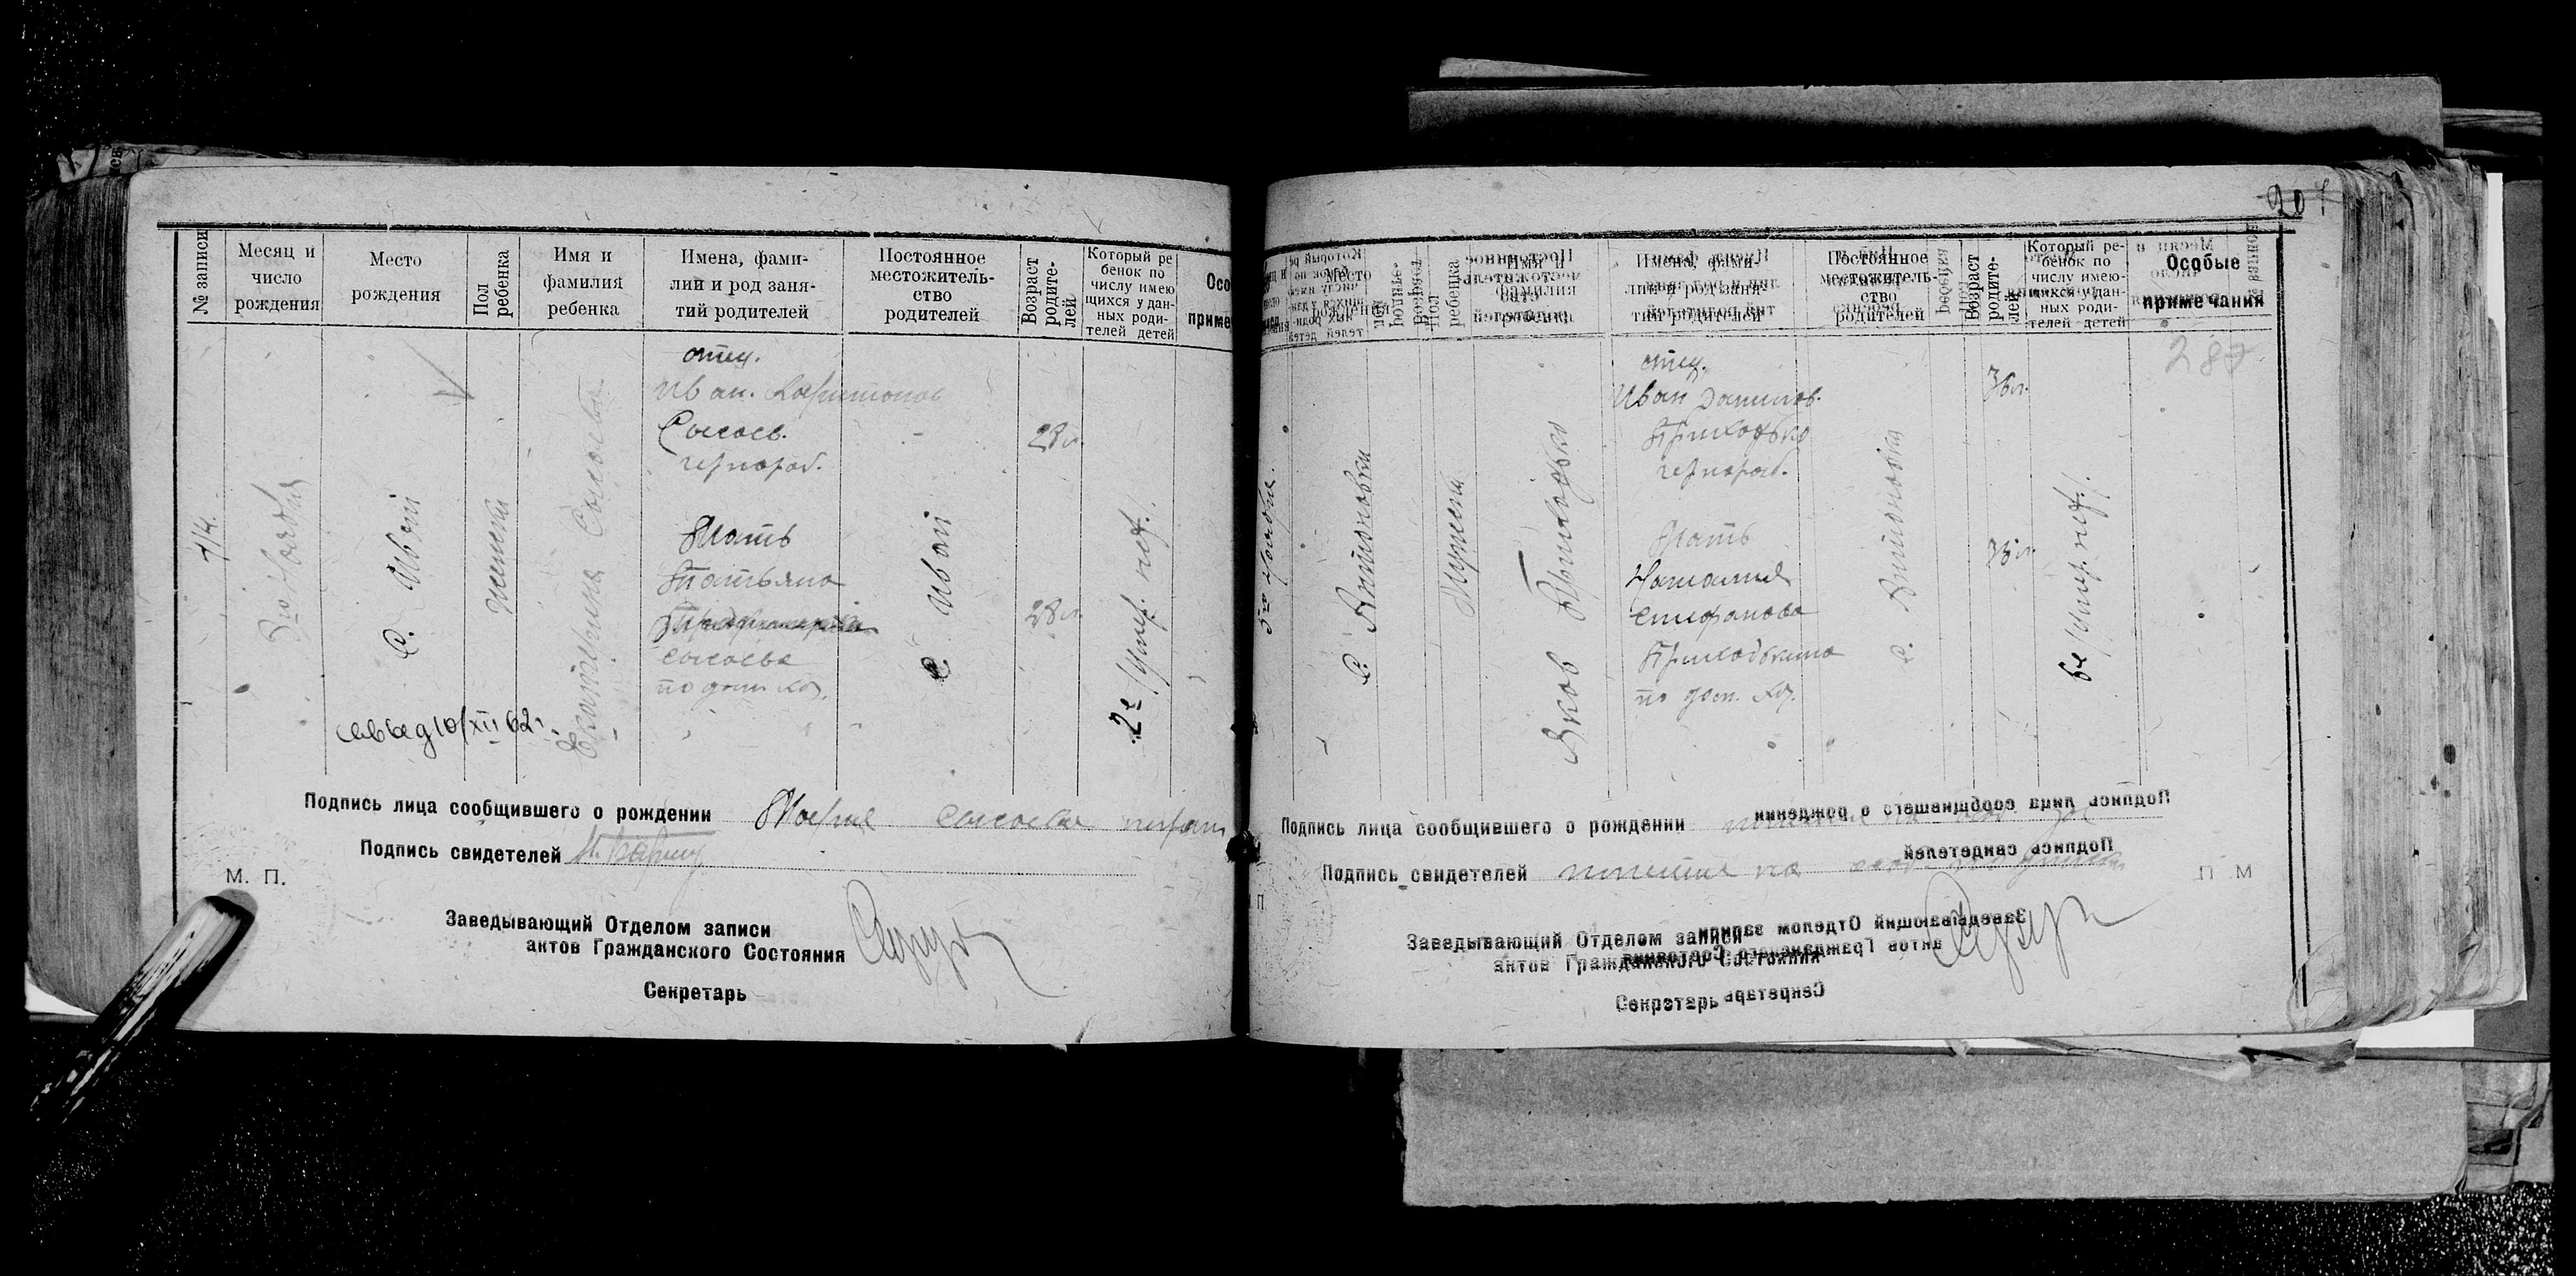 № записи
Месяц и число рождения
Место рождения
Пол ребенка
Имя и фамилия ребенка
Имена, фами-
лии и род заня-
тий родителей
Постоянное
местожитель-
ство
родителей
Возраст
родите-
лей
Который ре
бенок по
числу имею
щихся у дан-
ных роди-
телей детей
Осо
приме
отец.
Иван.
Сысоев.
чернораб.
28 л.
714.
с. Ивот
женский
Екатерина Сысоева
Мать
Татьяна
Сысоева
по дом. хоз.
с. Ивот
28 л.
2е
свид 10/XII 62 г.
Подпись лица сообщившего о рождении Мария Сысоева
Подпись свидетелей
М. П.
Заведывающий Отделом записи
актов Гражданского Состояния
Секретарь
201
Место
рождения
Пол
ребенка
Имя и
фамилия
ребенка
Имена, фами-
лии и род заня-
тий родителей
Постоянное
местожитель-
ство
родителей
Возраст
родите-
лей
Который ре-
бенок по
числу имею-
щихся у дан-
ных роди-
телей детей
Особые
примечания
287
отец.
Иван Данилов.
Приходько
чернораб.
36 л.
с. Антоновка
Яков Приходько
Мать
Наталия
Стефанова
Приходькина
по дом. хоз.
с. Антоновка
6е
Подпись лица сообщившего о рождении
Подпись свидетелей
Заведывающий Отделом записи
актов Гражданского Состояния
Секретарь